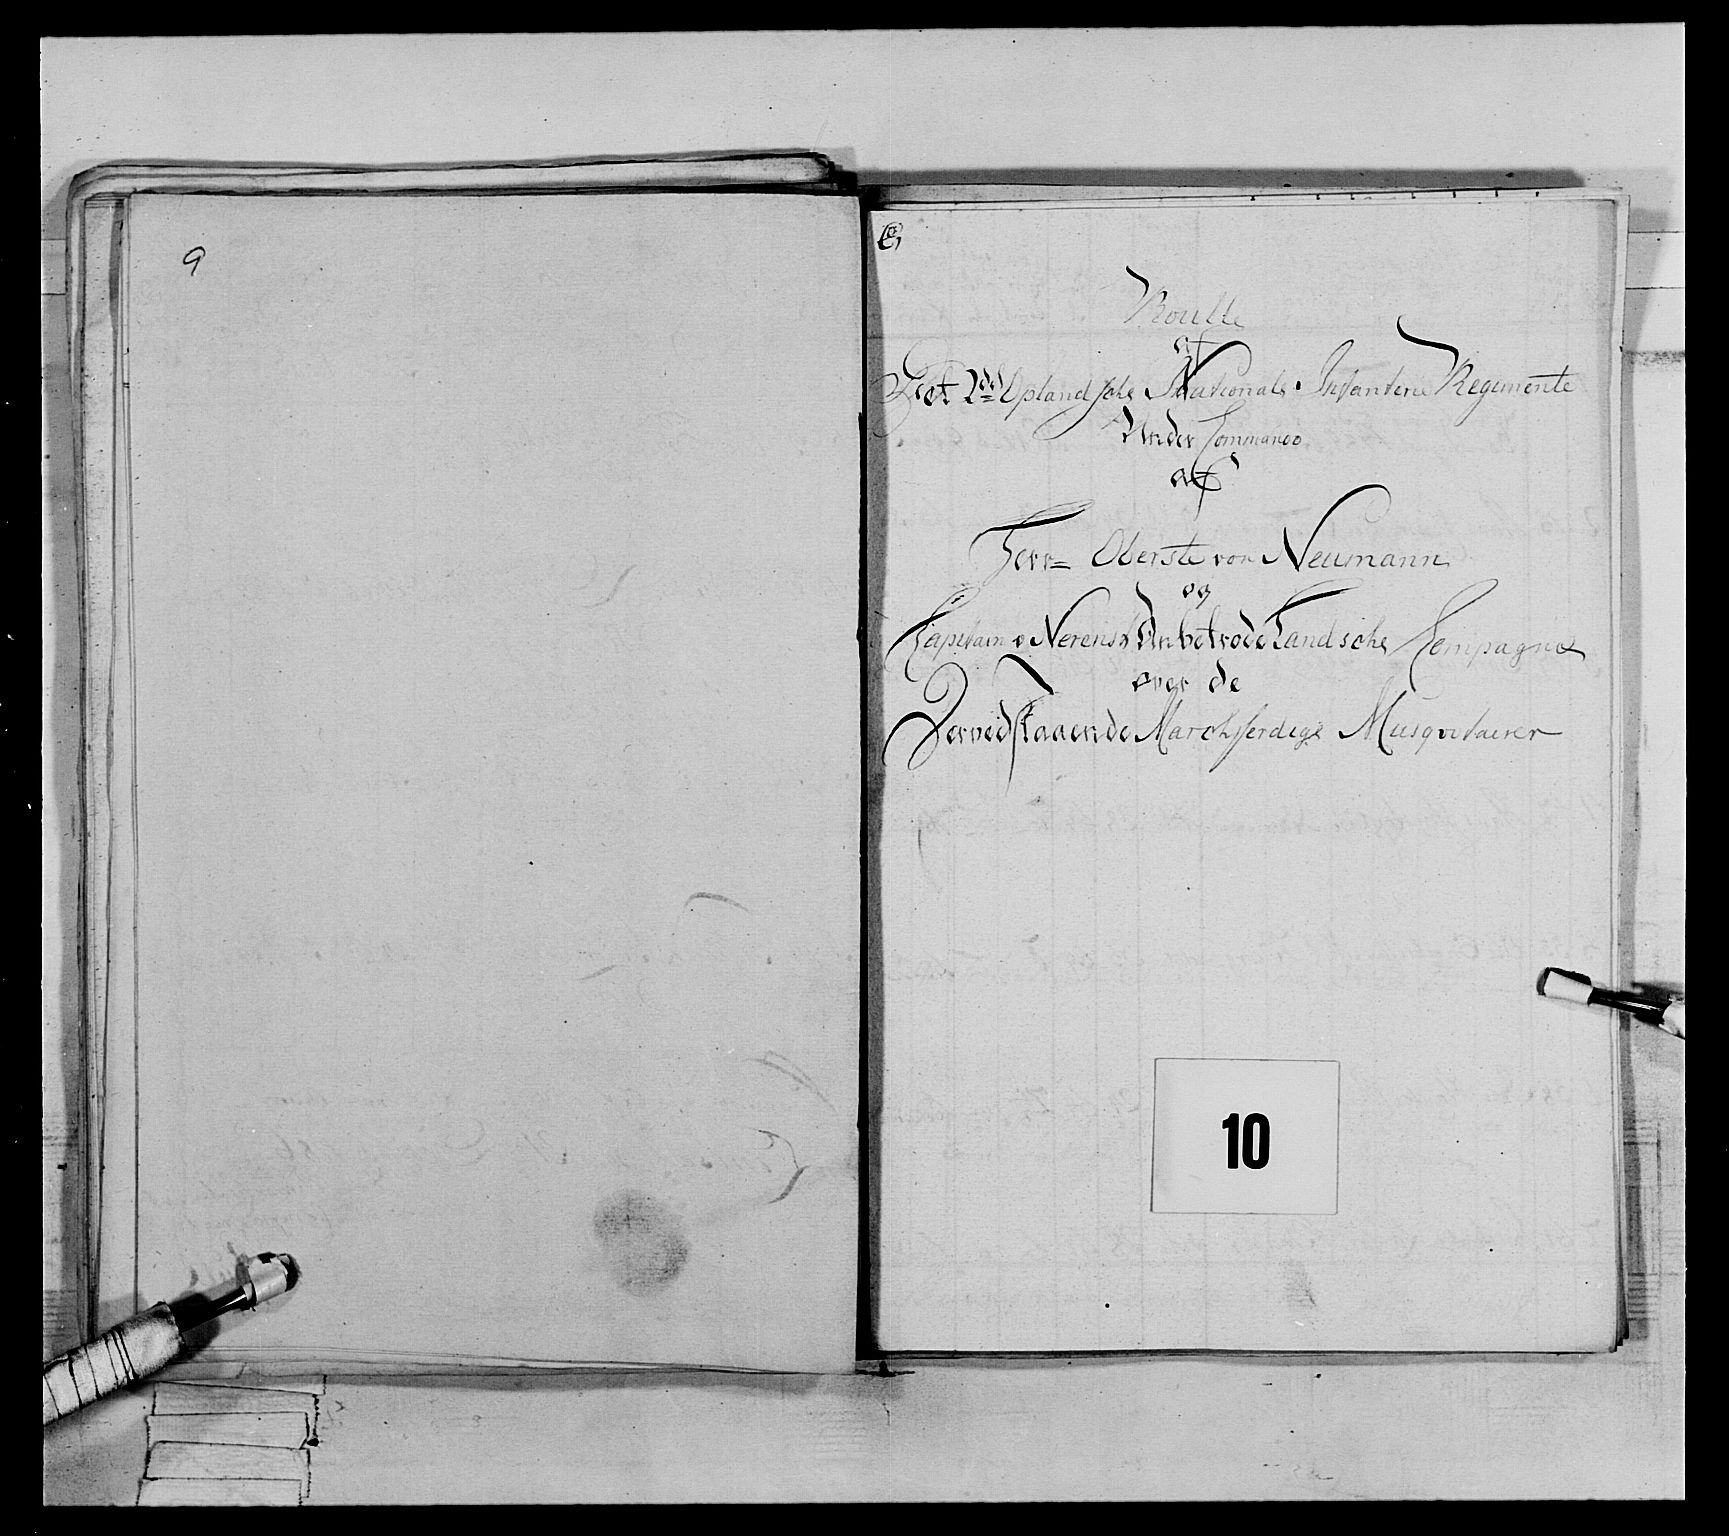 9
Roulle
af
Det 2det Oplandsche Nationale Infanterie Regimente
Under Commando
af
Herr Oberste von Neumann
og
Capitain v Nerenst Anbetrode Landsche Compagnie
over de
Dervedstaaende Marchferdige Musqvetairer
10